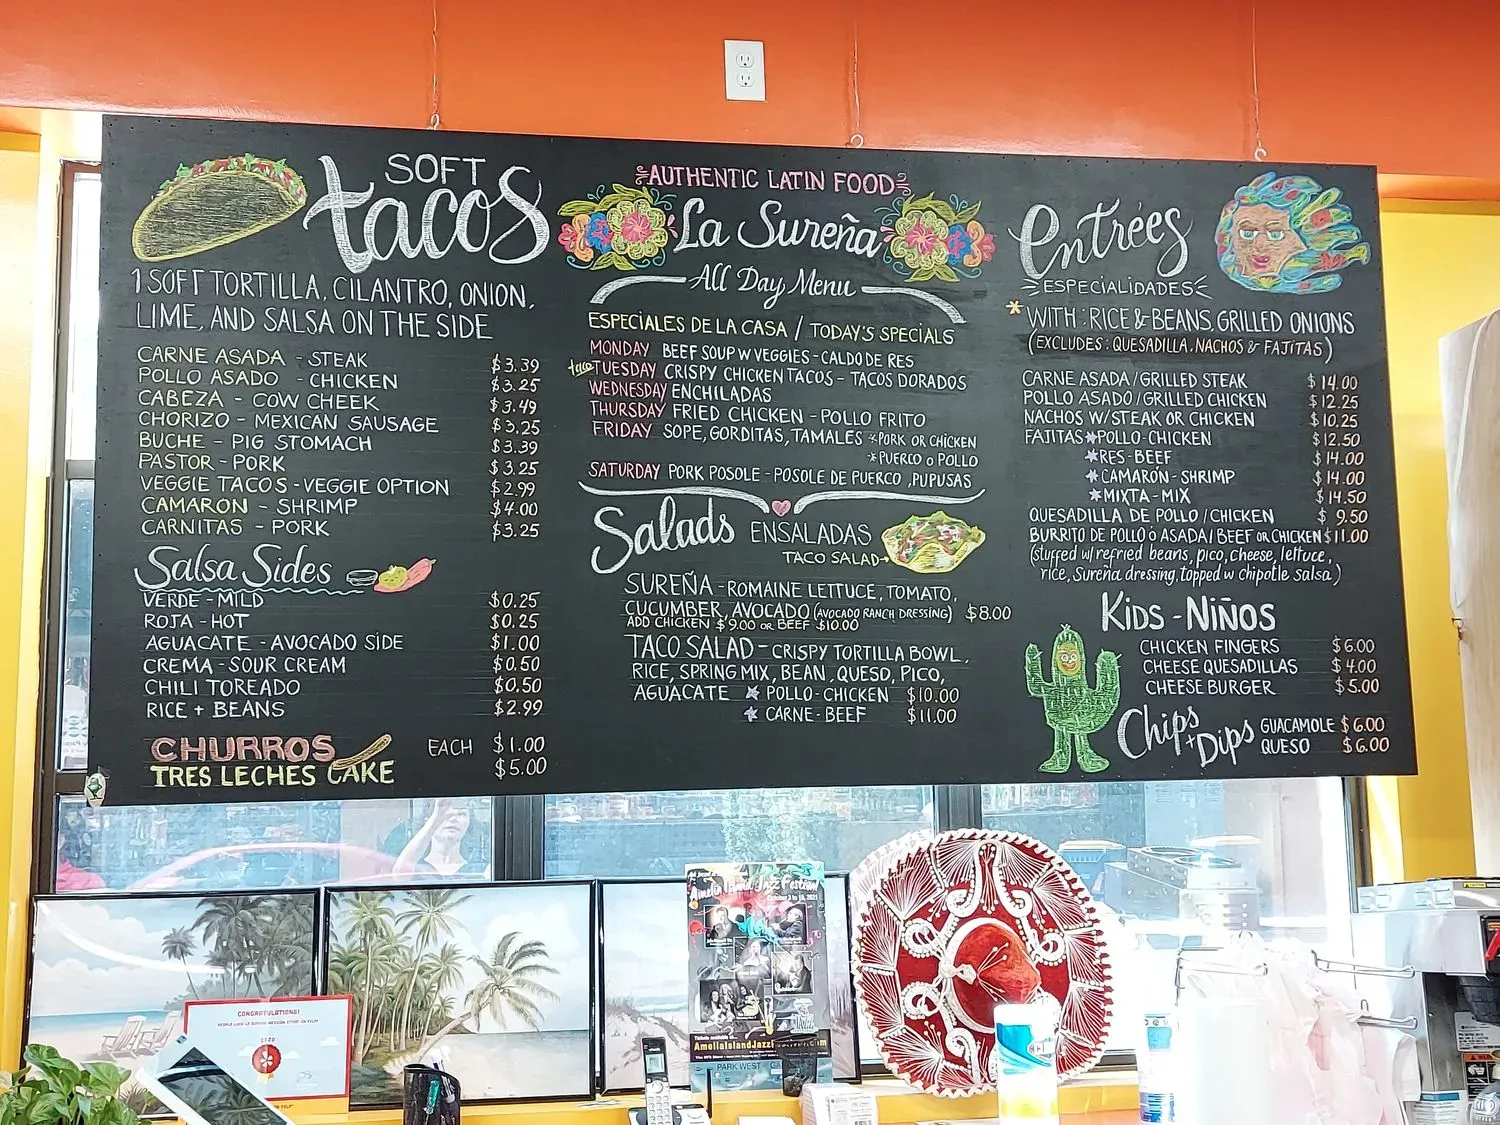 SOFT
tacos
1 SOFT TORTILLA, CILANTRO, ONION,
LIME, AND SALSA ON THE SIDE
CARNE ASADA - STEAK $3.39
POLLO ASADO - CHICKEN $3.25
CABEZA - COW CHEEK $3.49
CHORIZO - MEXICAN SAUSAGE $3.25
BUCHE - PIG STOMACH $3.39
PASTOR - PORK $3.25
VEGGIE TACOS - VEGGIE OPTION $2.99
CAMARON - SHRIMP $4.00
CARNITAS - PORK $3.25
Salsa Sides
VERDE - MILD $0.25
ROJA - HOT $0.25
AGUACATE - AVOCADO SIDE $1.00
CREMA - SOUR CREAM $0.50
CHILI TOREADO $0.50
RICE + BEANS $2.99
CHURROS EACH $1.00
TRES LECHES CAKE $5.00
AUTHENTIC LATIN FOOD
La Sureña
All Day Menu
ESPECIALES DE LA CASA / TODAY'S SPECIALS
MONDAY BEEF SOUP W VEGGIES - CALDO DE RES
taco TUESDAY CRISPY CHICKEN TACOS - TACOS DORADOS
WEDNESDAY ENCHILADAS
THURSDAY FRIED CHICKEN - POLLO FRITO
FRIDAY SOPE, GORDITAS, TAMALES *PORK OR CHICKEN
*PUERCO o POLLO
SATURDAY PORK POSOLE - POSOLE DE PUERCO, PUPUSAS
Salads ENSALADAS
TACO SALAD→
SUREÑA - ROMAINE LETTUCE, TOMATO,
CUCUMBER, AVOCADO (AVOCADO RANCH DRESSING) $8.00
ADD CHICKEN $9.00 OR BEEF $10.00
TACO SALAD - CRISPY TORTILLA BOWL,
RICE, SPRING MIX, BEAN, QUESO, PICO,
AGUACATE * POLLO - CHICKEN $10.00
* CARNE - BEEF $11.00
Entrées
ESPECIALIDADES
* WITH: RICE & BEANS, GRILLED ONIONS
(EXCLUDES: QUESADILLA, NACHOS & FAJITAS)
CARNE ASADA / GRILLED STEAK $14.00
POLLO ASADO / GRILLED CHICKEN $12.25
NACHOS W/ STEAK OR CHICKEN $10.25
FAJITAS *POLLO - CHICKEN $12.50
*RES - BEEF $14.00
*CAMARÓN - SHRIMP $14.00
*MIXTA - MIX $14.50
QUESADILLA DE POLLO / CHICKEN $9.50
BURRITO DE POLLO ò ASADA / BEEF OR CHICKEN $11.00
(stuffed w/ refried beans, pico, cheese, lettuce,
rice, Sureña dressing, topped w chipotle salsa)
KIDS - NIÑOS
CHICKEN FINGERS $6.00
CHEESE QUESADILLAS $4.00
CHEESE BURGER $5.00
Chips + Dips
GUACAMOLE $6.00
QUESO $6.00
Amelia Island Jazz Festival
October 3 to 10, 2021
PARK WEST
CONGRATULATIONS!
2020